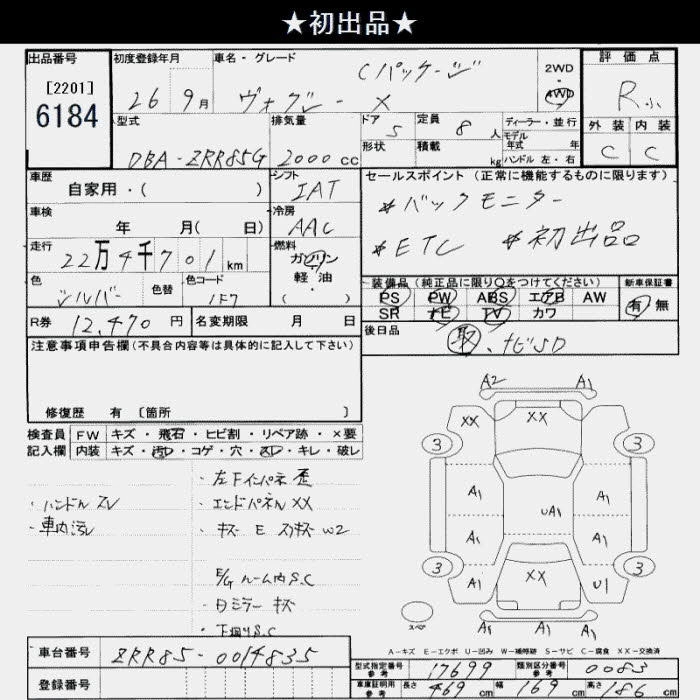 ★初出品★
出品番号
[2201]
6184
初度登録年月
26年 9月
車名・グレード
Cパッケージ
ヴォクシー X
2WD
・
4WD
評価点
R小
外装 内装
C C
型式
DBA-ZRR85G
排気量
2000cc
ドア 5
形状
定員 8人
積載 kg
ディーラー・並行
モデル年式 年
ハンドル 左・右
車歴
自家用・( )
シフト
IAT
セールスポイント (正常に機能するものに限ります)
*バックモニター
*ETC *初出品
車検
年 月( 日)
冷房
AAC
走行
22万4千701km
燃料
ガソリン
・
軽油
( )
色
シルバー
色替
色コード
1F7
装備品 (純正品に限り○をつけてください)
PS PW ABS エアB AW
SR ナビ TV カワ
新車保証書
有 無
R券 12,470円
名変期限 月 日
後日品
取、ナビSD
注意事項申告欄(不具合内容等は具体的に記入して下さい)
修復歴 有 [箇所 ]
検査員
記入欄
FW キズ・飛石・ヒビ割・リペア跡・×要
内装 キズ・汚れ・コゲ・穴・スレ・キレ・破レ
・ハンドルスレ
・車内汚レ
・左Fインパネ歪
・エンドパネルXX
・キズ E スリキズ W2
E/Gルーム内S.C
・日ミラーキズ
・下回りS.C
A2 A1
XX XX
3 3
A1 A1
UA1
A1 A1
3 3
A1 XX U1
A1 A1 A1
スペア
A-キズ E-エクボ U-凹み W-補修跡 S-サビ C-腐食 XX-交換済
車台番号 ZRR85-0014835
登録番号
型式指定番号
参考
17699
類別区分番号
参考
0083
車庫証明用
参考
長さ 469cm 幅 169cm 高さ 186cm